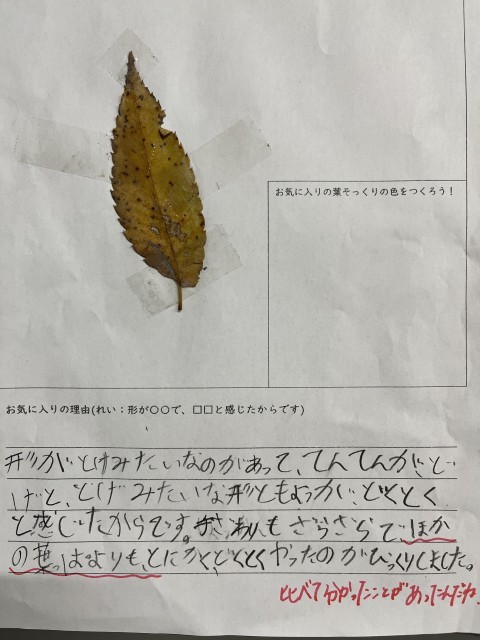 お気に入りの葉そっくりの色をつくろう！
お気に入りの理由(れい：形が〇〇で、□□と感じたからです)
形がとげみたいなのがあって、てんてんが、と
げと、とげみたいな形ともようが、どくとく
と感じたからです。手ざわりもさらさらで、ほか
の葉っぱよりも、とにかく、どくとくだったのがびっくりしました。
比べて分かったことがあったんだね。